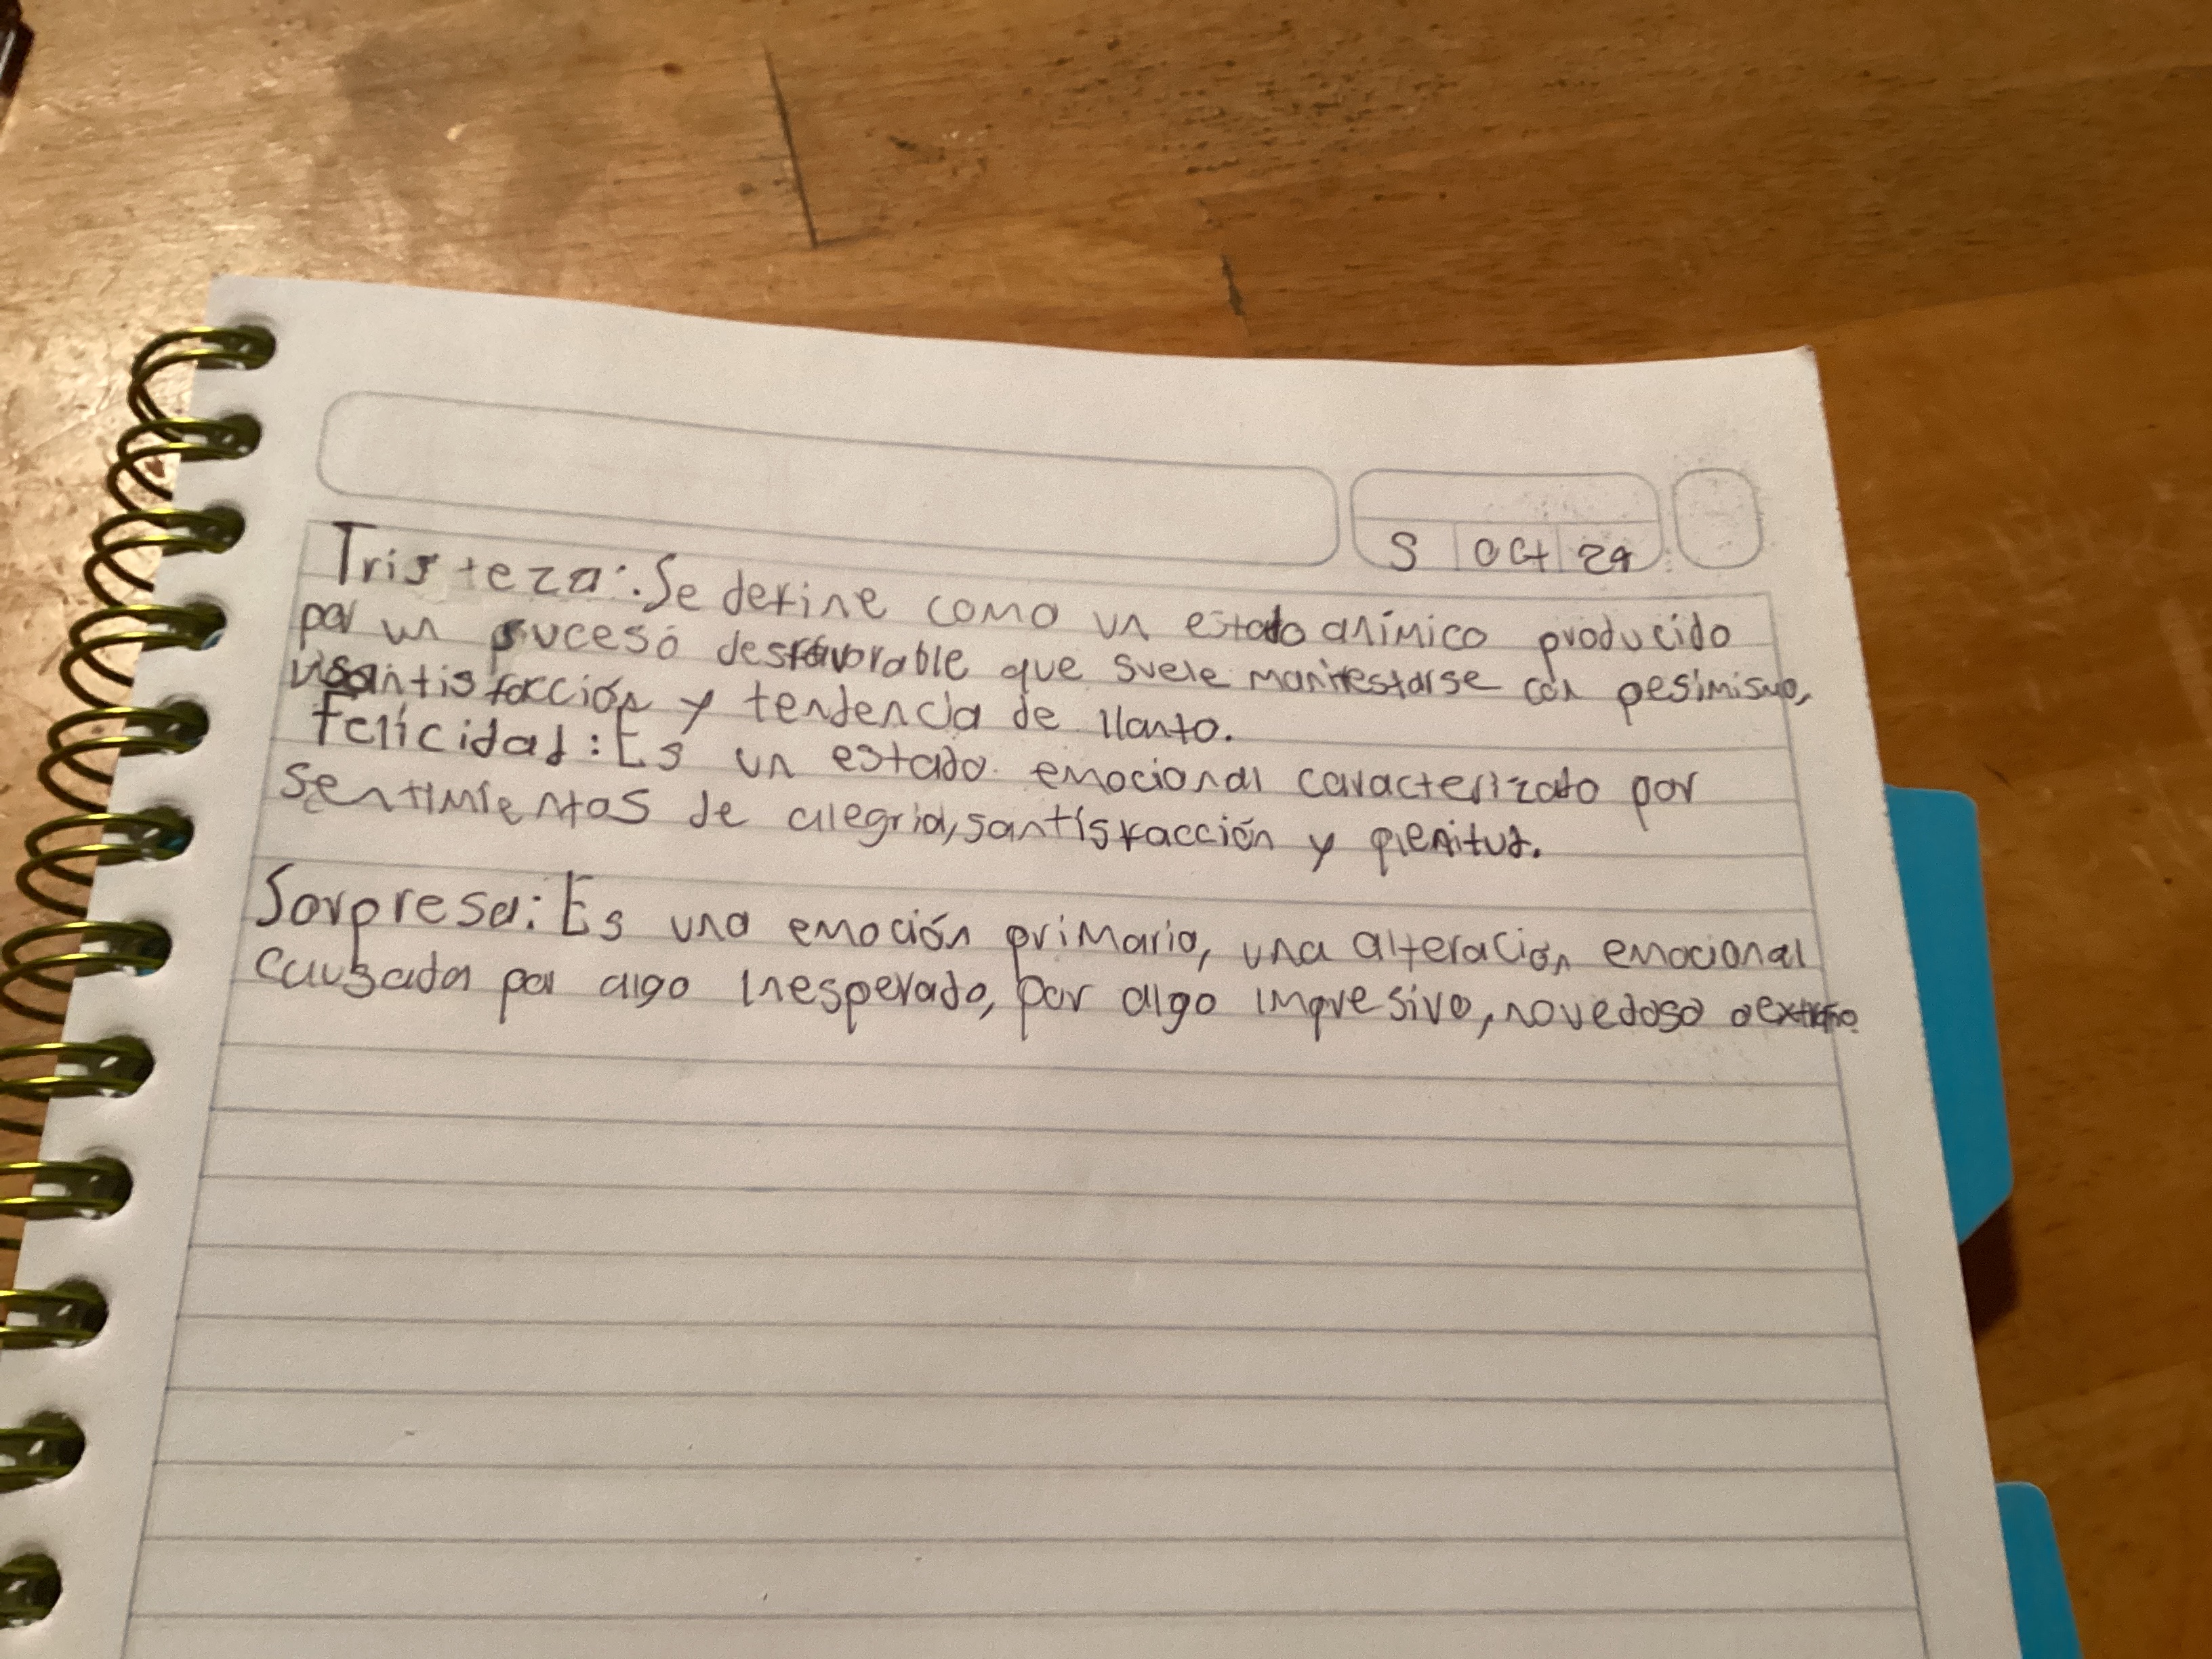 S OCT 24
Tristeza: Se define como un estado anímico producido
por un suceso desfavorable que suele manifestarse con pesimismo,
y tendencia de llanto.
Felicidad: Es un estado emocional caracterizado por
sentimientos de alegria, santisfacción y plenitud.
Sorpresa: Es una emoción primaria, una alteración emocional
causada por algo inesperado, por algo impresivo, novedoso o extraño